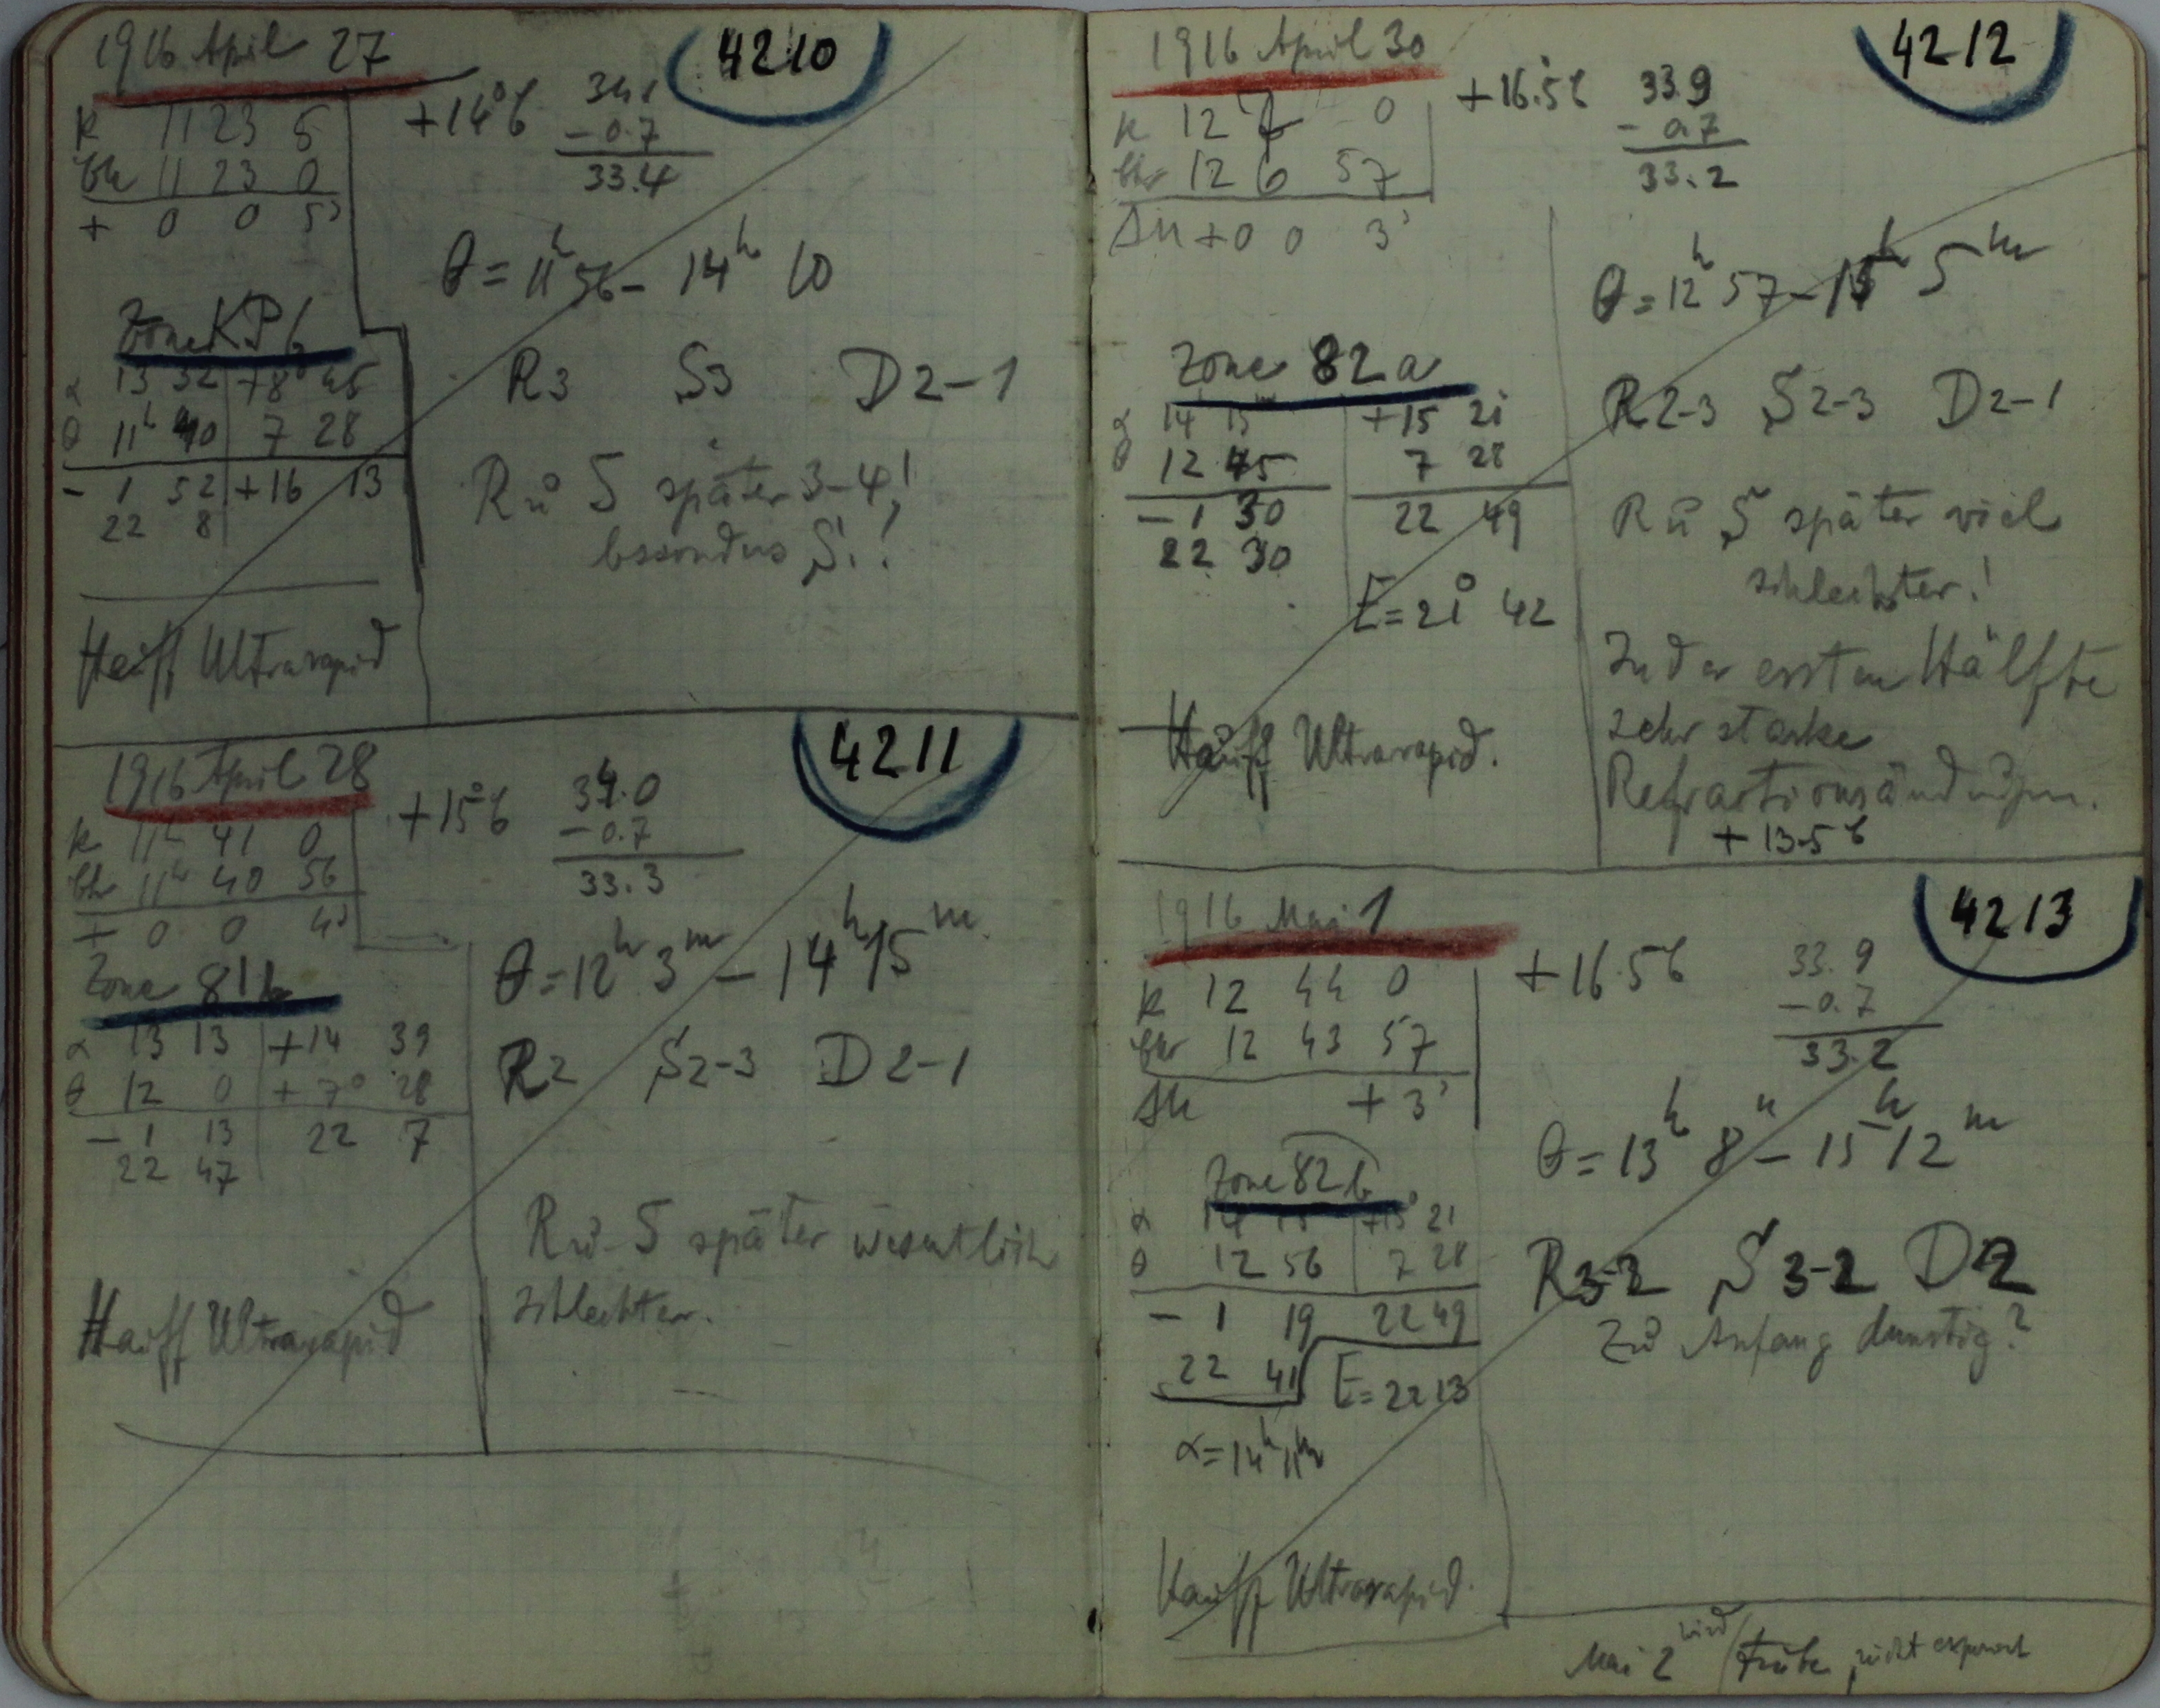 1916 April 27
4210
k 11 23 5
Uhr 11 23 0
+ 0 0 5s
+14°6
34.1
-0.7
33.4
θ = 11h 56 - 14h 10
Zone KP6
α 13 32 +8° 45
θ 11h 40 7 28
- 1 52 +16 13
22 8
R3 S3 D2-1
R u S später 3-4,!
besonders S.!
Hauff Ultrarapid
1916 April 28
4211
k 11h 41 0
Uhr 11h 40 56
+ 0 0 4s
+15°6
34.0
-0.7
33.3
θ = 12h 3m - 14h 15m
Zone 81b
α 13 13 +14 39
θ 12 0 +7° 28
- 1 13 22 7
22 47
R2 S2-3 D2-1
R u S später wesentlich
schlechter.
Hauff Ultrarapid
1916 April 30
4212
k 12 7 0
Uhr 12 6 57
Δu +0 0 3s
+16.5 6
33.9
-0.7
33.2
θ = 12h 57 - 15h 5m
Zone 82a
α 14 15m +15 21
θ 12 45 7 28
- 1 30 22 49
22 30
E = 21° 42
R2-3 S2-3 D2-1
R u S später viel
schlechter!
In der ersten Hälfte
sehr starke
Refractionsändrgn.
+13.5 6
Hauff Ultrarapid.
1916 Mai 1
4213
k 12 44 0
Uhr 12 43 57
Δu +3s
+16.5 6
33.9
-0.7
33.2
θ = 13h 8m - 15h 12m
Zone 82b
α 14 15 +15° 21
θ 12 56 7 28
- 1 19 22 49
22 41
E = 22 13
α = 14h 11m
R3-2 S3-2 D2
Zu Anfang dunstig?
Hauff Ultrarapid.
Mai 2 wird trübe, nicht exponirt